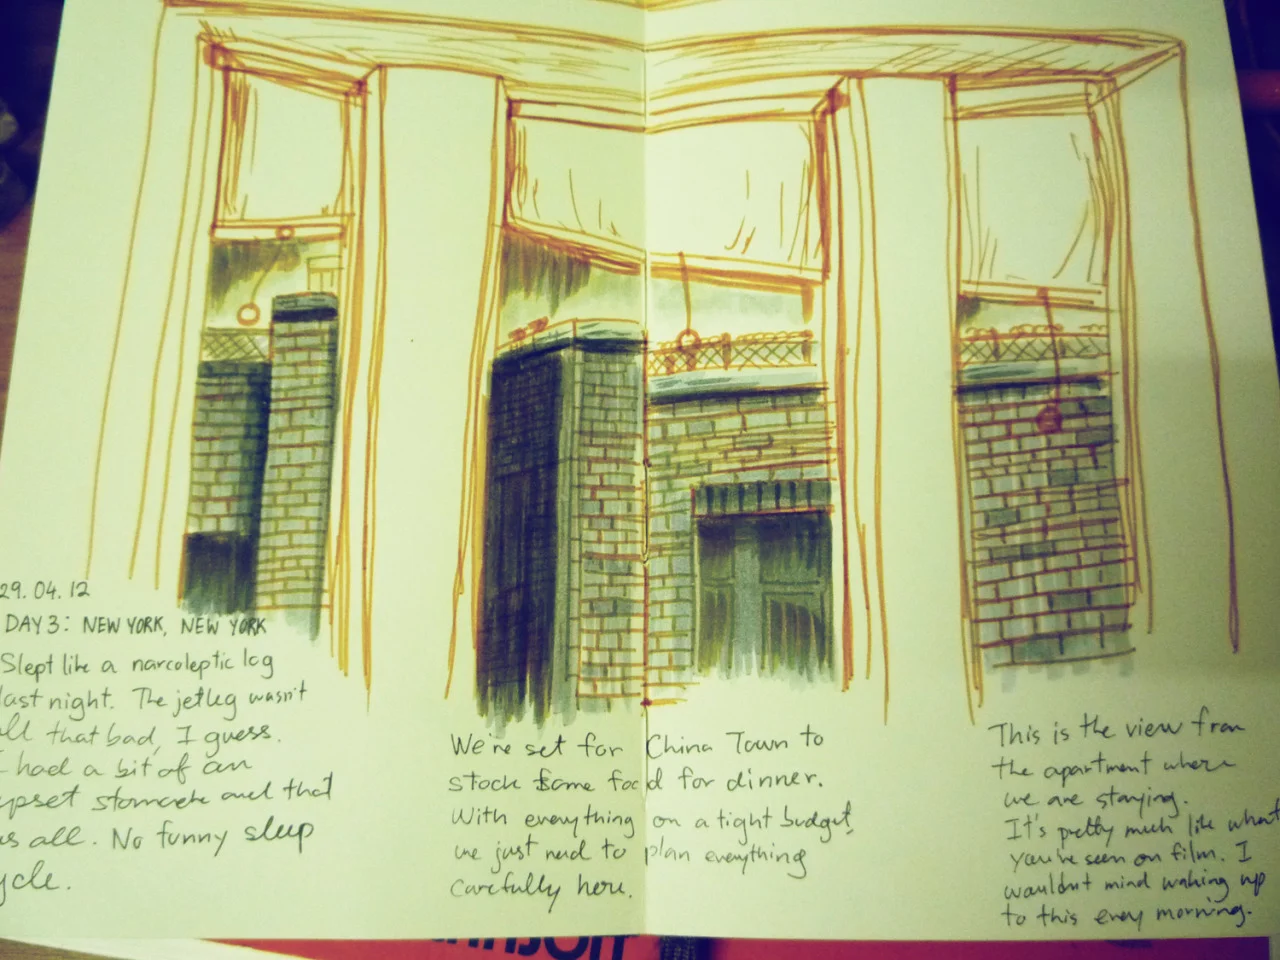 29.04.12
DAY 3: NEW YORK, NEW YORK
Slept like a narcoleptic log
last night. The jetleg wasn't
all that bad, I guess.
I had a bit of an
upset stomach and that
was all. No funny sleep
cycle.
We're set for China Town to
stock some food for dinner.
With everything on a tight budget,
we just need to plan everything
carefully here.
This is the view from
the apartment where
we are staying.
It's pretty much like what
you've seen on film. I
wouldn't mind waking up
to this every morning.